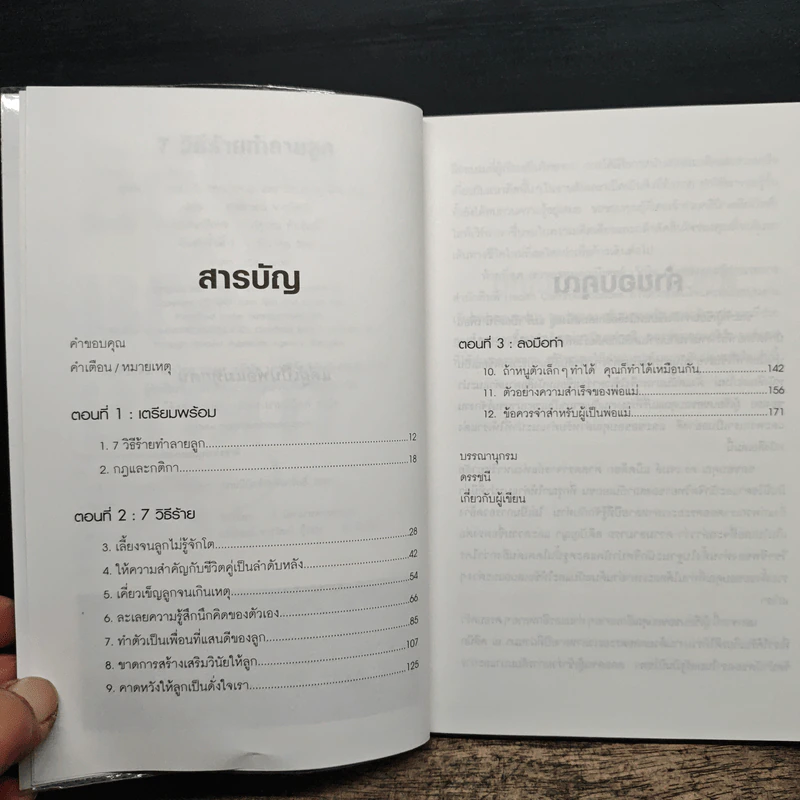 สารบัญ
คำขอบคุณ
คำเตือน / หมายเหตุ
ตอนที่ 1 : เตรียมพร้อม
1. 7 วิธีร้ายทำลายลูก 12
2. กฎและกติกา 18
ตอนที่ 2 : 7 วิธีร้าย
3. เลี้ยงจนลูกไม่รู้จักโต 28
4. ให้ความสำคัญกับชีวิตคู่เป็นลำดับหลัง 42
5. เคี่ยวเข็ญลูกจนเกินเหตุ 54
6. ละเลยความรู้สึกนึกคิดของตัวเอง 66
7. ทำตัวเป็นเพื่อนที่แสนดีของลูก 85
8. ขาดการสร้างเสริมวินัยให้ลูก 107
9. คาดหวังให้ลูกเป็นดั่งใจเรา 125
ตอนที่ 3 : ลงมือทำ
10. ถ้าหนูตัวเล็กๆ ทำได้ คุณก็ทำได้เหมือนกัน 142
11. ตัวอย่างความสำเร็จของพ่อแม่ 156
12. ข้อควรจำสำหรับผู้เป็นพ่อแม่ 171
บรรณานุกรม
ดรรชนี
เกี่ยวกับผู้เขียน